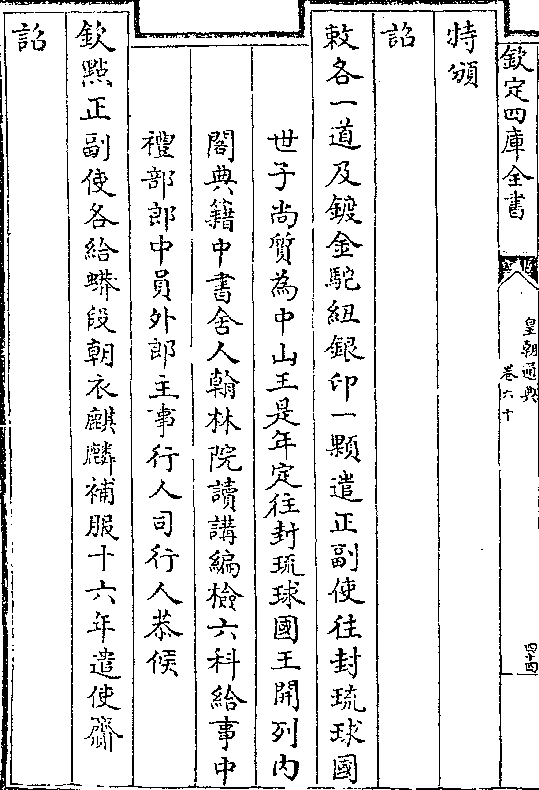 欽定四庫全書
皇朝通典
卷六十
四十四
特頒
詔
敕各一道及鍍金駝紐銀印一顆遣正副使往封琉球國
世子尚質為中山王是年定往封琉球國王開列内
閣典籍中書舍人翰林院讀講編檢六科給事中
禮部郎中員外郎主事行人司行人恭候
欽點正副使各給蟒段朝衣麒麟補服十六年遣使齎
詔